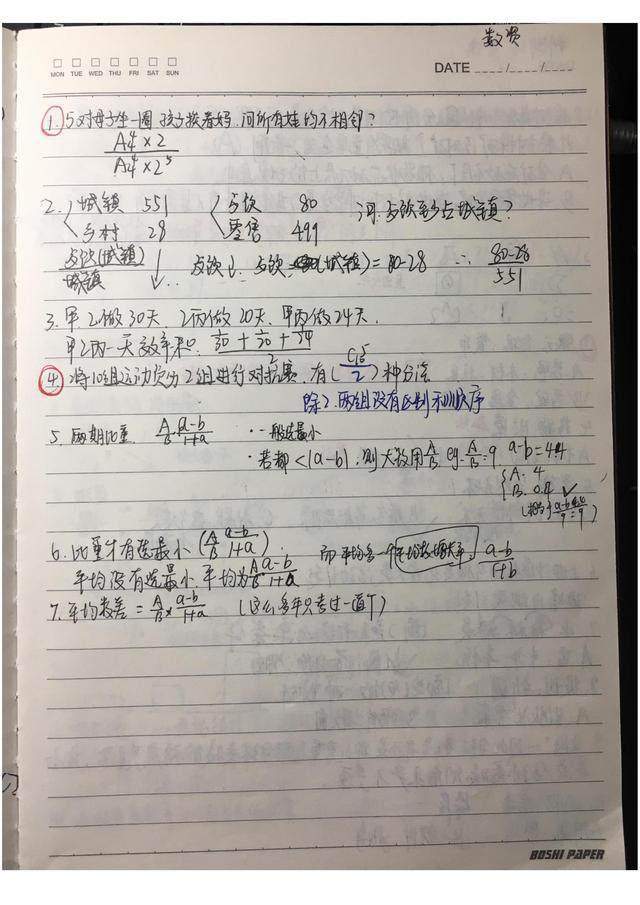 数资
MON TUE WED THU FRI SAT SUN
DATE
1. 5对母子坐一圈 孩子挨着妈,问所有娃的不相邻?
A4×2
A4×2⁵
2. 城镇 551 与饮 80 问:与饮至少占城镇?
乡村 28 零售 499
与饮(城镇)
城镇
与饮(城镇)=80-28 ∴ 80-28
551
3. 甲乙做30天,乙丙做20天,甲丙做24天,
甲乙丙一天效率和: 1/30 + 1/20 + 1/24
2
4. 将10组运动员分2组进行对抗赛,有( 2 )种分法
除2,两组没有区别和顺序
5. 两期比重 A/B × a-b/1+a · 一般选最小
· 若都<|a-b|,则大致用A/B eg. A/B=9 a-b=4.4
A. 4
B. 0.4 ✓
6. 比重才有选最小 (A/B a-b/1+a) 而平均多一个平均数增长率, a-b/1+b
平均没有选最小,平均为A/B a-b/1+a
7. 平均数差 = A/B × a-b/1+a (这么多年只考过一道T)
BOSHI PAPER